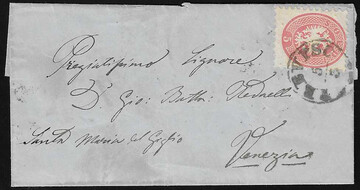 Pregiatissimo Signore
D.r Gio: Batta:
Santa Maria del Giglio
Venezia
5